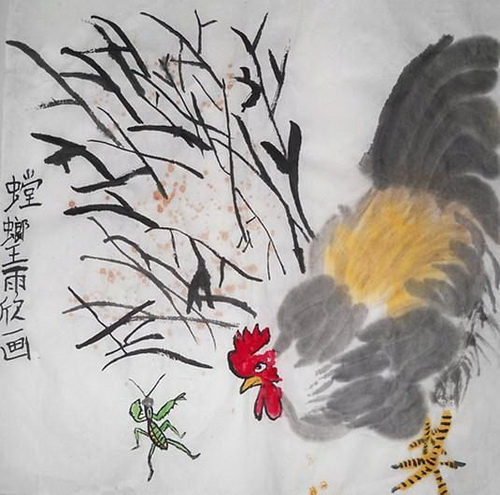 螳螂王雨欣画